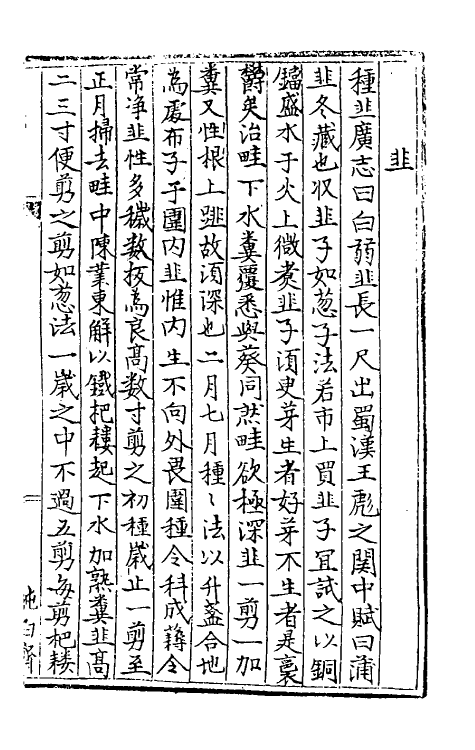 韭
種韭廣志曰白弱韭長一尺出蜀漢王彪之関中賦曰蒲
韭冬藏也収韭子如葱子法若市上買韭子冝試之以銅
鐺盛水于火上微煮韭子湏臾芽生者好芽不生者是裛
欝矣治畦下水糞覆悉與葵同然畦欲極深韭一剪一加
糞又性根上跳故湏深也二月七月種〻法以升盞合地
為處布子于圍内韭惟内生不向外畏圍種令科成薅令
常净韭性多穢数拔為良高数寸剪之初種歳止一剪至
正月掃去畦中陳葉東解以鐵把耬起下水加熟糞韭高
二三寸便剪之剪如葱法一歳之中不過五剪每剪杷耬
純白齋